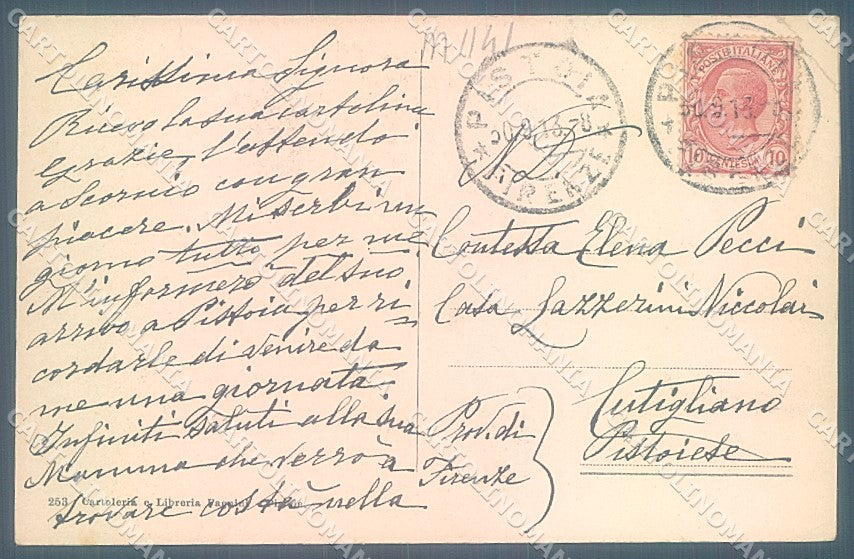 M 1141
Carissima Signora
Ricevo la sua cartolina
e grazie, l'attendo
a Scornio con gran
piacere. Mi serbi un
giorno tutto per me
M'informerò del suo
arrivo a Pistoia per ri=
cordarle di venire da
me una giornata.
Infiniti saluti alla sua
Mamma che verrò a
trovare costà nella
253 Cartoleria e Libreria
PISTOIA
30.8.13.-8
FIRENZE
POSTE ITALIANE
10 CENTESIMI 10
N. D.
Contessa Elena Pecci
Casa Lazzerini Niccolai
Cutigliano
Pistoiese
Prov. di
Firenze
CARTOLINOMANIA